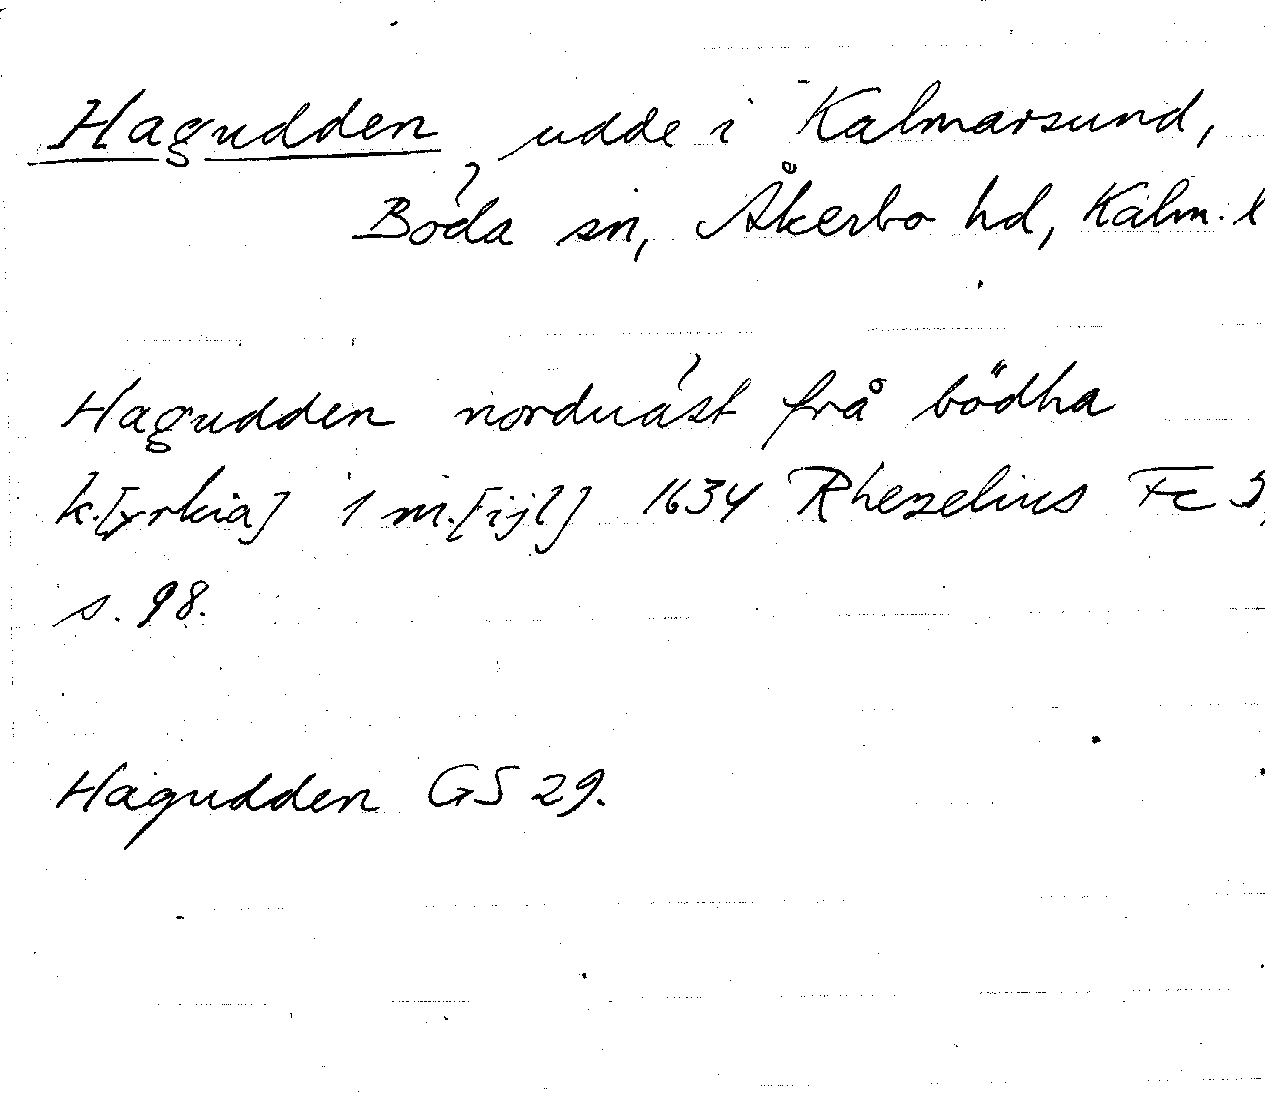 Hagudden, udde i Kalmarsund,
Böda sn, Åkerbo hd, Kalm. l
Hagudden norduäst frå bödha
k.[yrkia] 1 m.[ijl] 1634 Rhezelius Fc 5,
s. 98.
Hagudden GS 29.